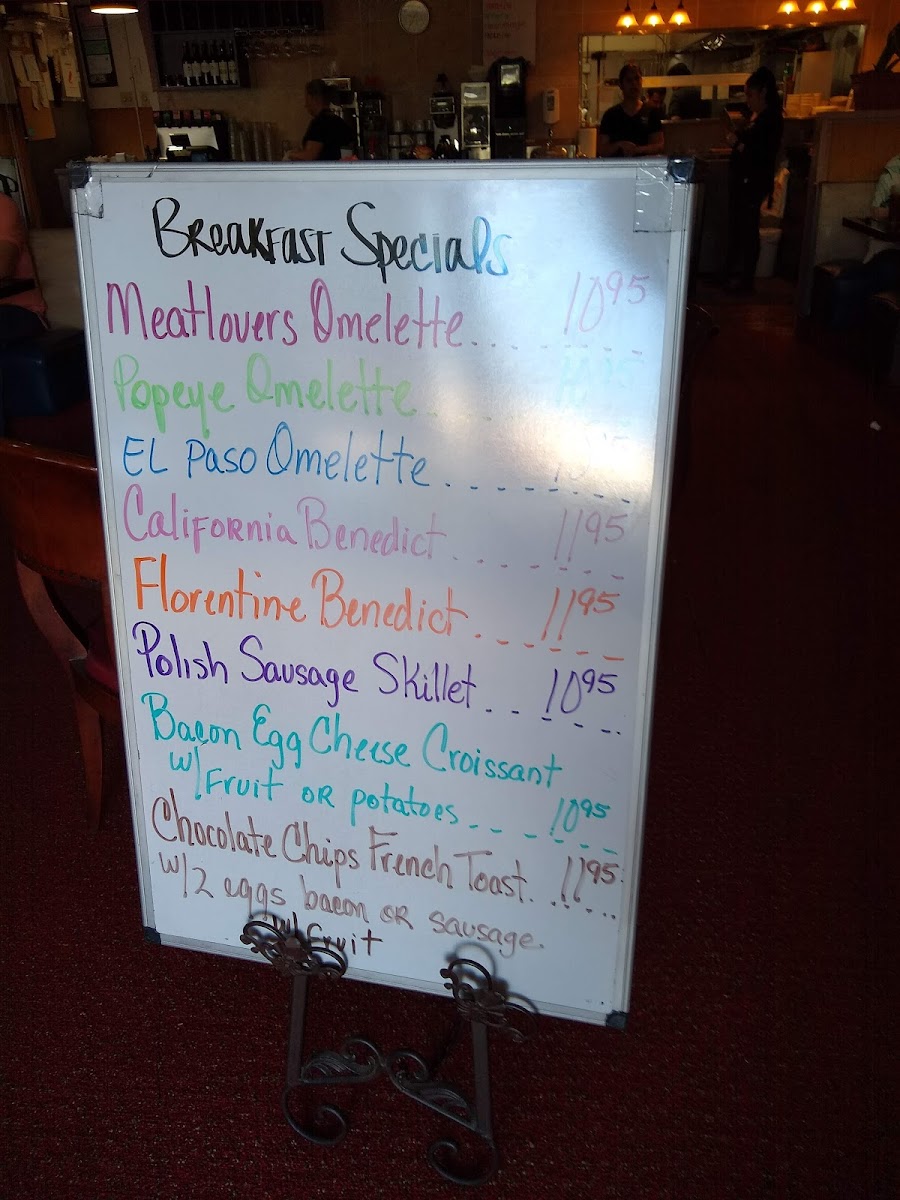 Breakfast Specials
Meatlovers Omelette.... 10 95
Popeye Omelette. 10 95
EL Paso Omelette........ 10 95
California Benedict...... 11 95
Florentine Benedict..... 11 95
Polish Sausage Skillet..... 10 95
Bacon Egg Cheese Croissant
w/ Fruit OR potatoes..... 10 95
Chocolate Chips French Toast..... 11 95
w/2 eggs bacon OR sausage.
w/ fruit